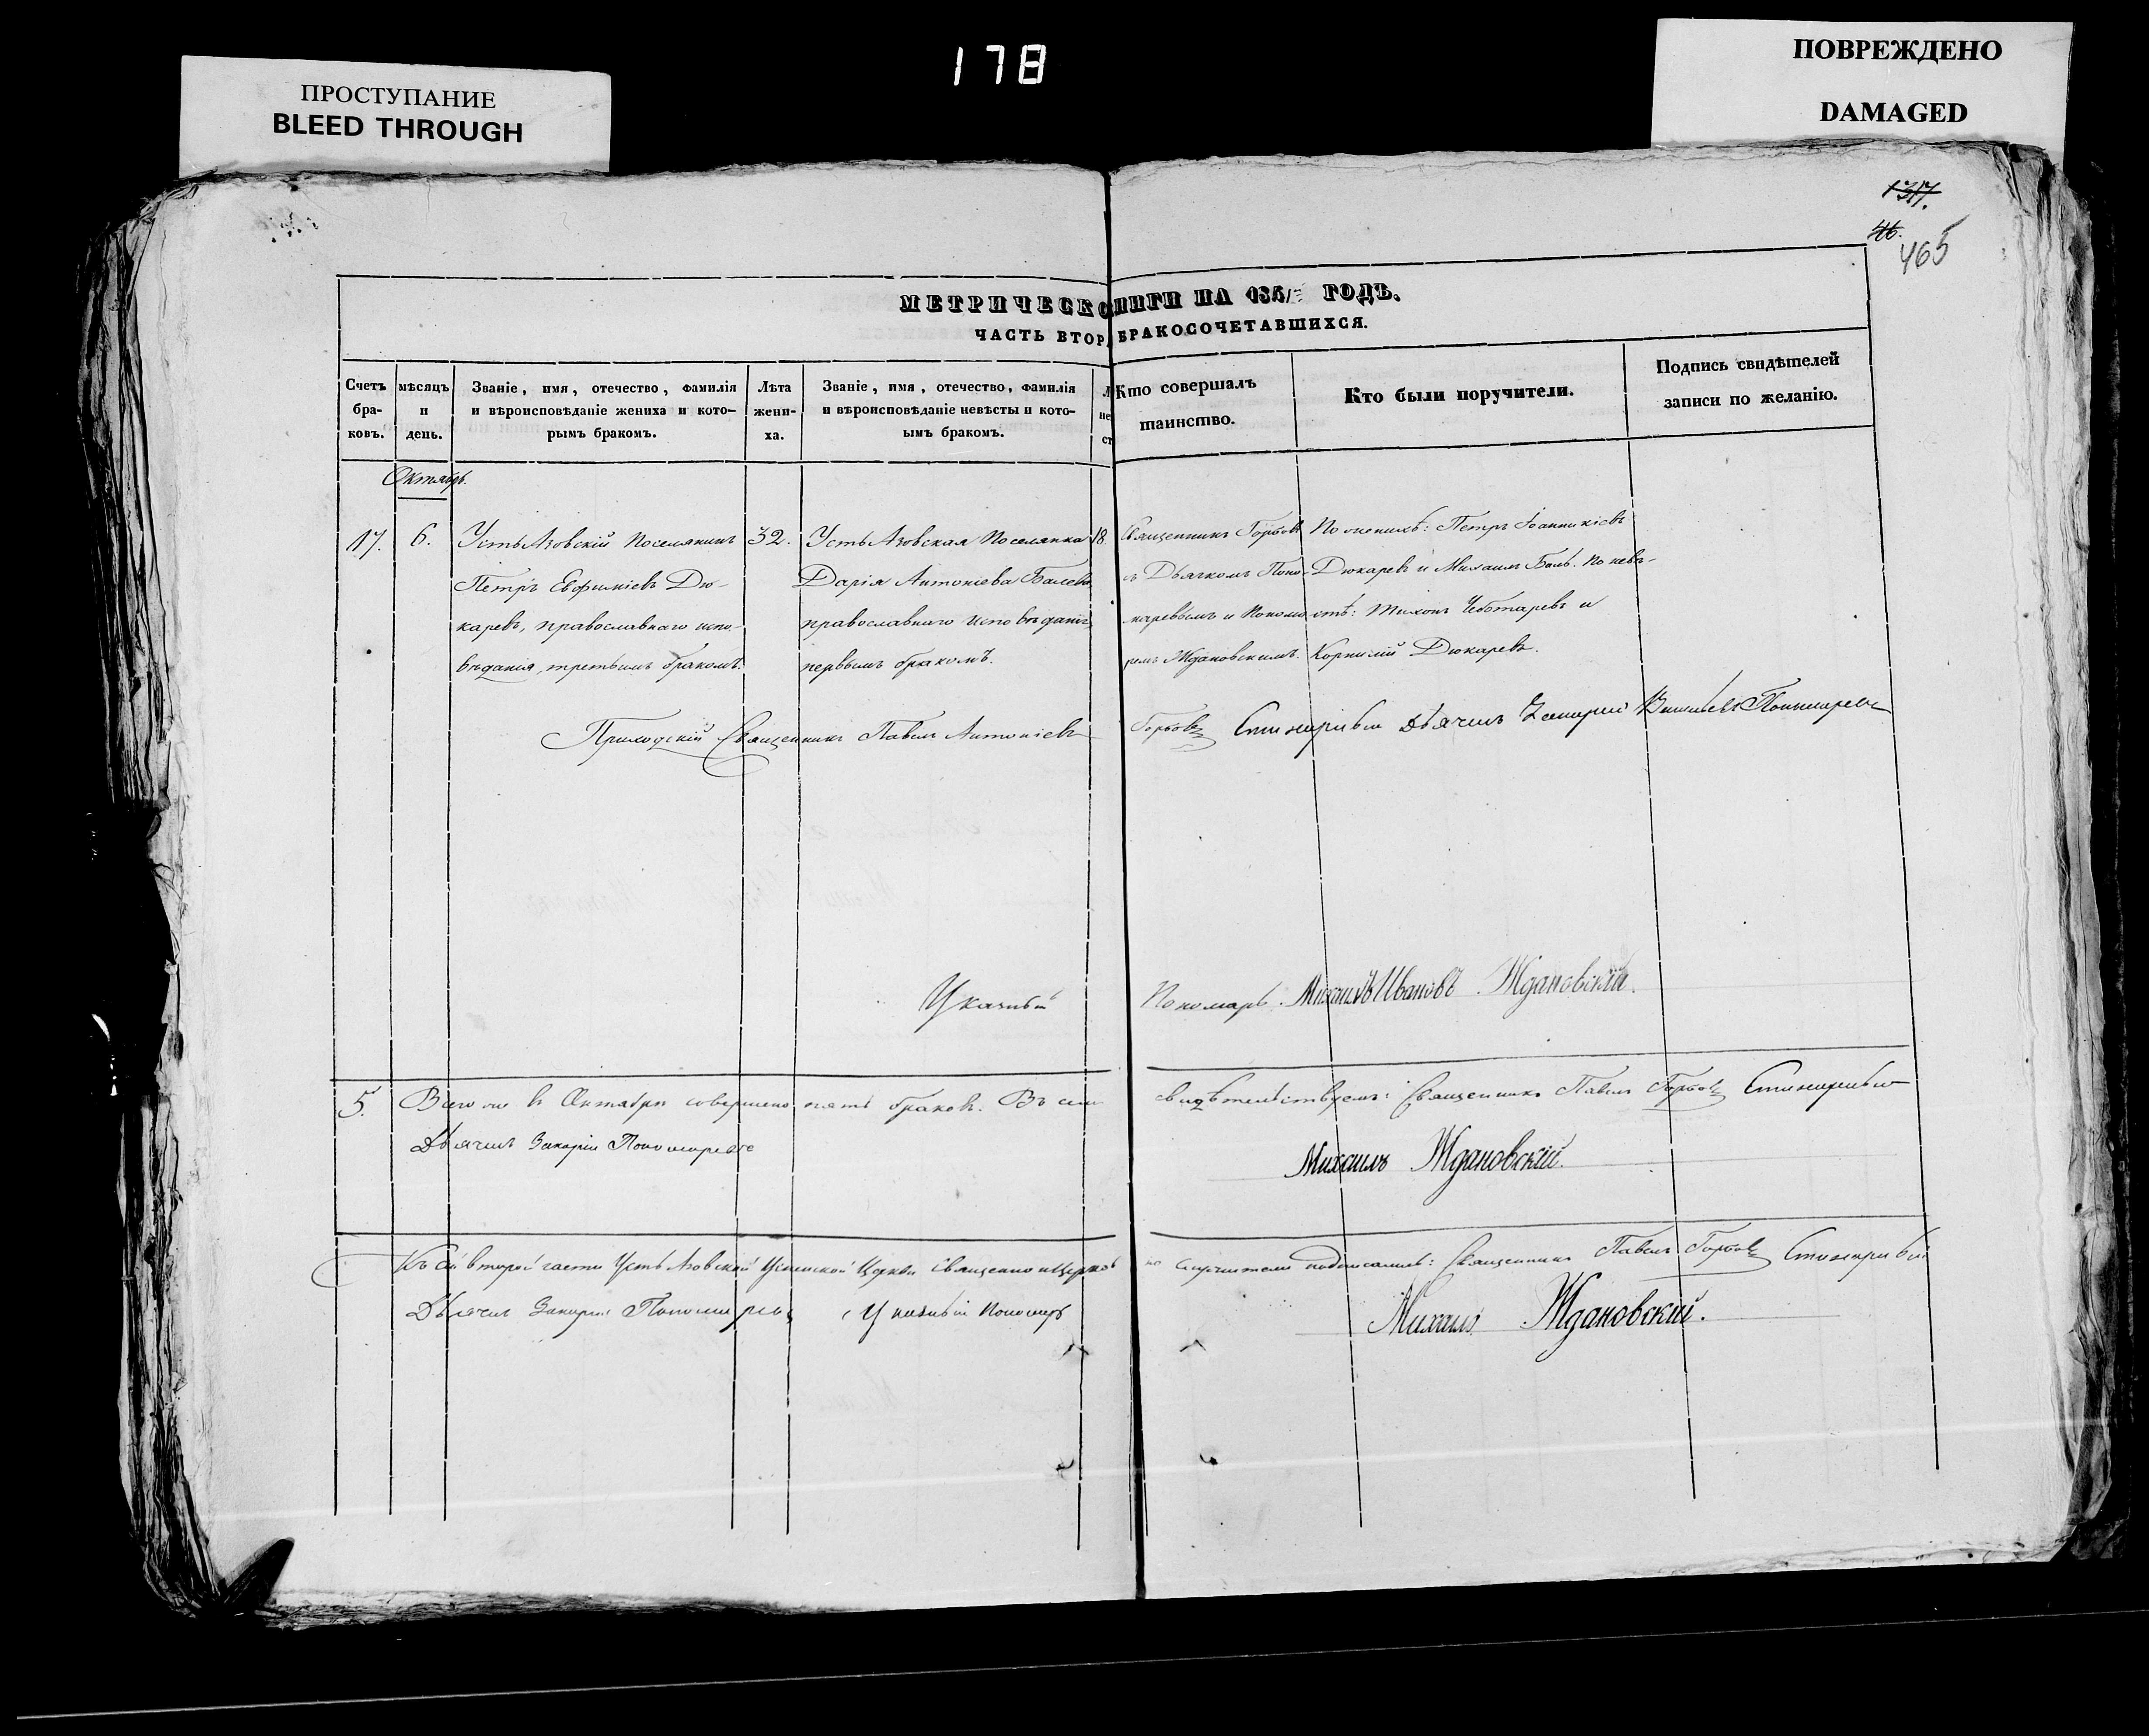 178
ПРОСТУПАНИЕ
BLEED THROUGH
ПОВРЕЖДЕНО
DAMAGED
1317.
465
МЕТРИЧЕСКО НИГИ НА 185 ГОДЪ.
ЧАСТЬ ВТОР БРАКОСОЧЕТАВШИХСЯ.
Счетъ бра- ковъ.
мѣсяцъ и день.
Званіе, имя, отечество, фамилія и вѣроисповѣданіе жениха и кото- рымъ бракомъ.
Лѣта жени- ха.
Званіе, имя, отечество, фамилія и вѣроисповѣданіе невѣсты и кото- ымъ бракомъ.
Кто совершалъ таинство.
Кто были поручители.
Подпись свидѣтелей записи по желанію.
Октябрь.
17.
6.
Усть Азовскій Поселянинъ
Петръ Евфиміевъ Дю-
каревъ, православнаго испо-
вѣданія, третьимъ бракомъ.
32.
Усть Азовская Поселянка
Дарія Антоніева
православнаго исповѣданія,
первымъ бракомъ.
18.
Священникъ Горбовъ
съ Дьячкомъ Поно-
маревымъ и Понома-
ремъ Ждановскимъ.
По женихѣ: Петръ Іоанникіевъ
Дюкаревъ и Михаилъ Баль. По невѣ-
стѣ: Тихонъ Чеботаревъ и
Корнилій Дюкаревъ.
Приходскій Священникъ Павелъ Антоніевъ Горбовъ
Дьячекъ Захарій Васильевъ Пономаревъ
Указный Пономарь Михаилъ Ивановъ Ждановскій.
5.
Всего въ Октябрѣ совершено пять браковъ. Въ семъ свидѣтельствуемъ: Священникъ Павелъ Горбовъ
Дьячекъ Захарій Пономаревъ
Михаилъ Ждановскій.
Къ сей второй части Усть Азовской Успенской Церкви Священно и Церковно Служители подписались: Священникъ Павелъ Горбовъ
Дьячекъ Захарій Пономаревъ Указный Пономарь
Михаилъ Ждановскій.